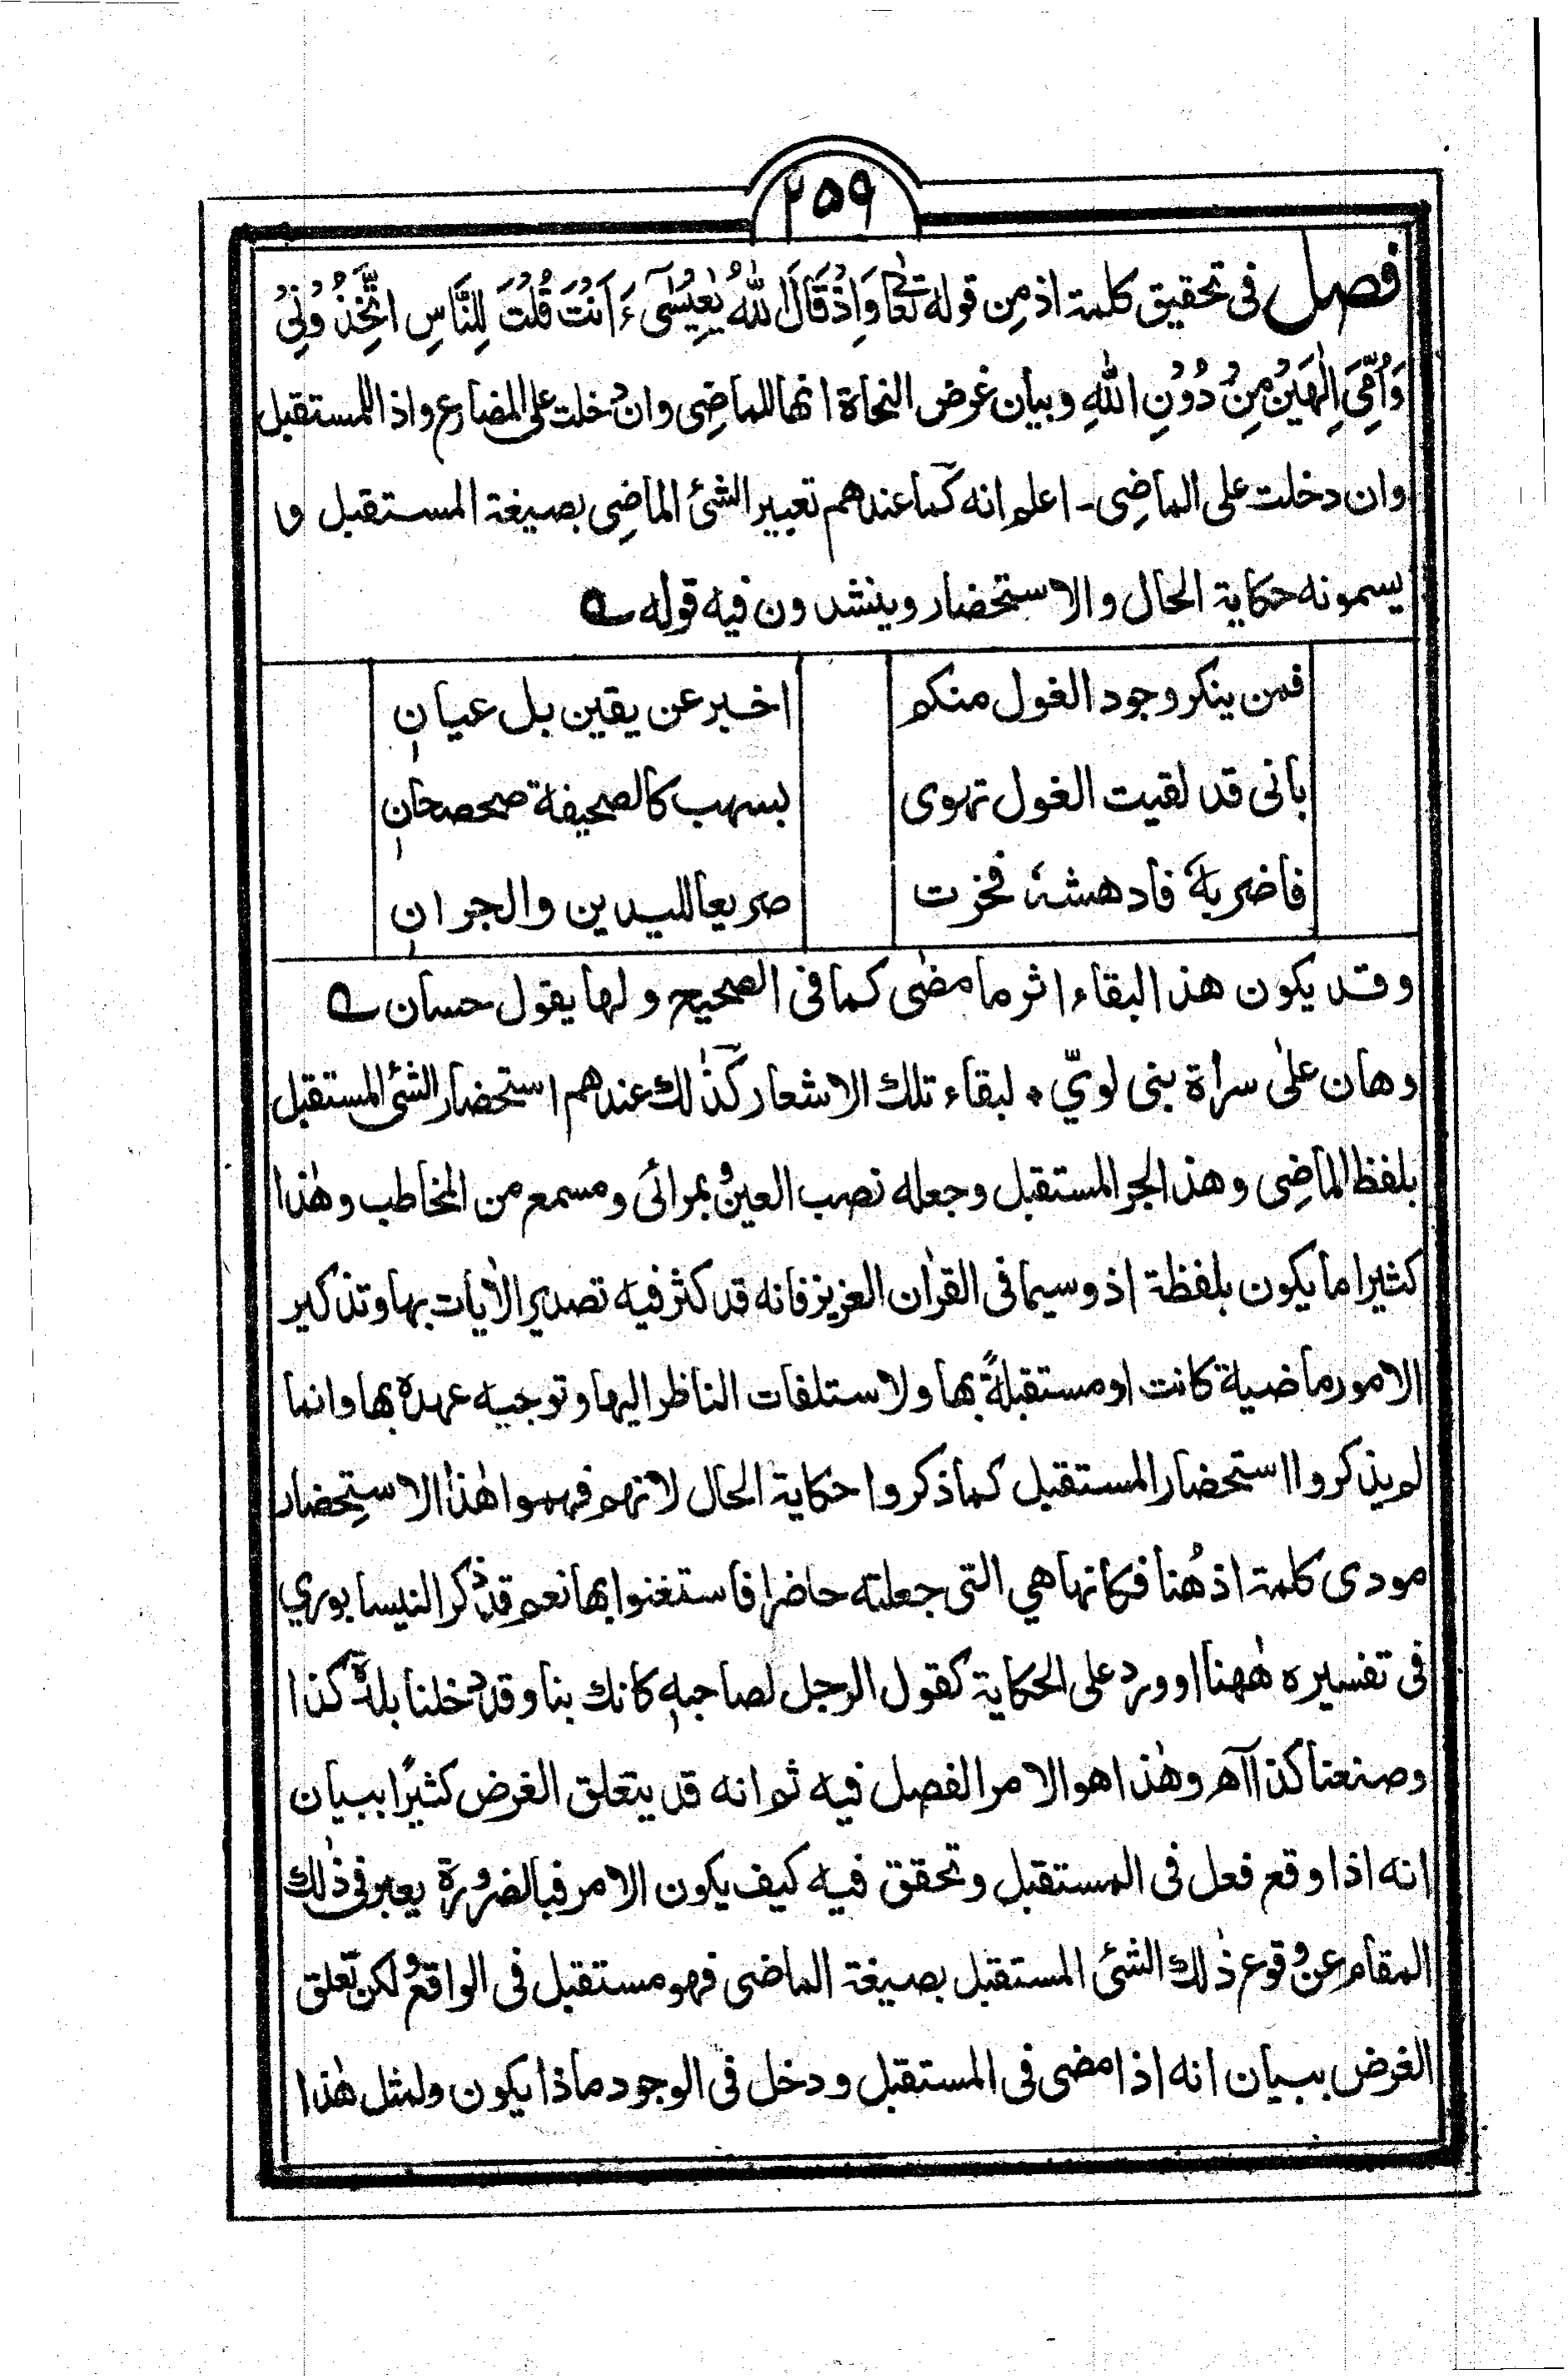 ۲۵۹
فصل فی تحقیق کلمۃ اذ مِن قولہ تعالٰی وَاِذْ قَالَ اللّٰہُ یٰعِیْسٰی ءَاَنْتَ قُلْتَ لِلنَّاسِ اتَّخِذُوْنِیْ
وَاُمِّیَ اِلٰہَیْنِ مِنْ دُوْنِ اللّٰہِ وبیان غرض النحاۃ انہا للماضِی وان دخلت علی المضارع واذا للمستقبل
وان دخلت علی الماضِی۔ اعلم انہ کما عندھم تعبیر الشئ الماضِی بصیغۃ المستقبل و
یسمونہ حکایۃ الحال والاستحضار وینشدون فیہ قولہ ؎
فمن ینکر وجود الغول منکم اخبر عن یقین بل عیان
بانی قد لقیت الغول تہوی بسہب کالصحیفۃ صحصحان
فاضربہٗ فادھشہٗ فخرت صریعا للیدین والجران
وقد یکون ھذا لبقاء اثر ما مضٰی کما فی الصحیح ولہا یقول حسان ؎
وھان علٰی سراۃ بنی لویّ ٭ لبقاء تلک الاشعار کذٰلک عندھم استحضار الشئ المستقبل
بلفظ الماضِی وھذا لجر المستقبل وجعلہ نصب العین وبمرائی ومسمع من المخاطب وھٰذا
کثیرا ما یکون بلفظۃ اذ وسیما فی القراٰن العزیز فانہ قد کثر فیہ تصدیر الاٰیات بہا وتذکیر
الامور ماضیۃ کانت او مستقبلۃً بھا ولاستلفات الناظر الیہا وتوجیہ عہدہ بھا وانما
لم یذکروا استحضار المستقبل کما ذکروا حکایۃ الحال لانہم فہموا ھٰذا الاستحضار
مودی کلمۃ اذ ھُنا فکانہا ھی التی جعلتہ حاضرا فاستغنوا بھا نعم قد ذکر النیسابوری
فی تفسیرہ ھٰھنا او ورد علی الحکایۃ کقول الرجل لصاحبہٖ کانک بنا وقد دخلنا بلدۃ کذا
وصنعنا کذا اٰہ وھٰذا ھو الامر الفصل فیہ ثم انہ قد یتعلق الغرض کثیرًا ببیان
انہ اذا وقع فعل فی المستقبل وتحقق فیہ کیف یکون الامر فبالضرورۃ یعبر فی ذٰلک
المقام عن وقوع ذٰلک الشئ المستقبل بصیغۃ الماضی فھو مستقبل فی الواقع ولکن تعلق
الغرض ببیان انہ اذا مضی فی المستقبل ودخل فی الوجود ماذا یکون ولمثل ھٰذا